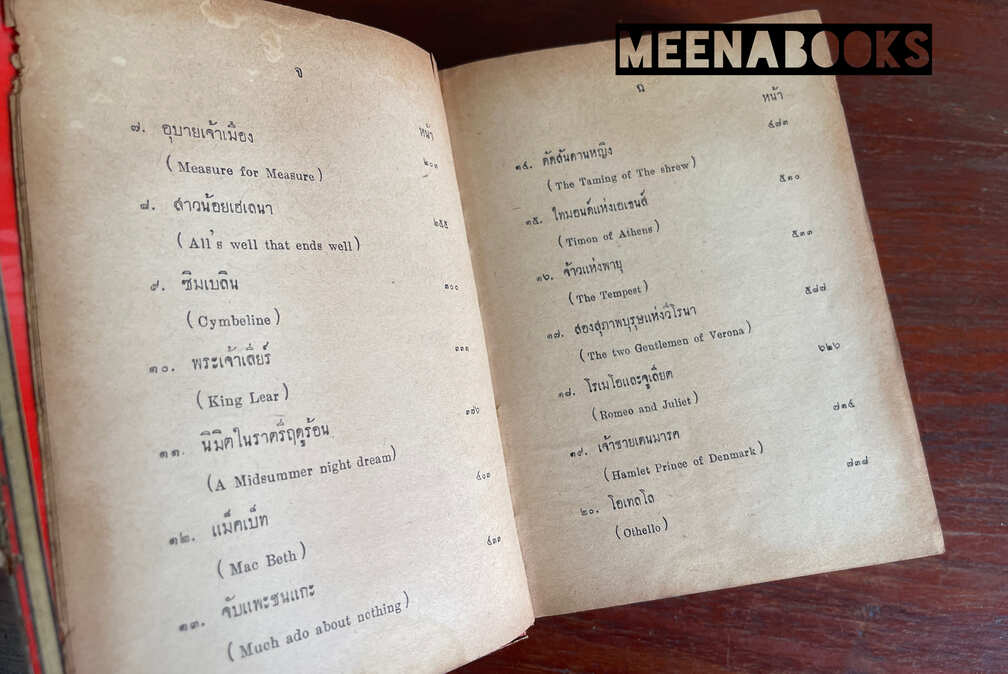 MEENABOOKS
จ
หน้า
๗. อุบายเจ้าเมือง ๒๐๓
(Measure for Measure)
๘. สาวน้อยเฮเลนา ๒๕๕
(All's well that ends well)
๙. ซิมเบลิน ๓๐๐
(Cymbeline)
๑๐. พระเจ้าเลียร์
(King Lear)
๑๑. นิมิตในราตรีฤดูร้อน
(A Midsummer night dream)
๑๒. แม็คเบ็ท
(Mac Beth)
๑๓. จับแพะชนแกะ
(Much ado about nothing)
หน้า
๑๔. ดัดสันดานหญิง ๔๗๓
(The Taming of The shrew)
๑๕. ไทมอนด์แห่งเอเธนส์ ๕๑๐
(Timon of Athens)
๑๖. จ้าวแห่งพายุ ๕๓๓
(The Tempest)
๑๗. สองสุภาพบุรุษแห่งวีโรนา ๕๘๘
(The two Gentlemen of Verona)
๑๘. โรเมโอและจูเลียต ๖๒๖
(Romeo and Juliet)
๑๙. เจ้าชายเดนมารค ๗๑๕
(Hamlet Prince of Denmark)
๒๐. โอเทลโล ๗๓๘
(Othello)